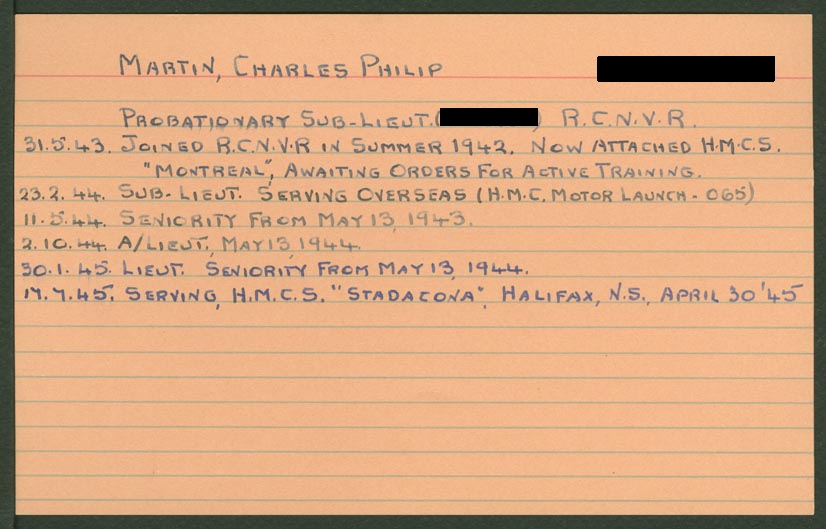 MARTIN, CHARLES PHILIP
PROBATIONARY SUB-LIEUT. ( ) R.C.N.V.R.
31.5.43. JOINED R.C.N.V.R IN SUMMER 1942. NOW ATTACHED H.M.C.S.
"MONTREAL", AWAITING ORDERS FOR ACTIVE TRAINING.
23.2.44. SUB-LIEUT. SERVING OVERSEAS (H.M.C. MOTOR LAUNCH - 065)
11.5.44. SENIORITY FROM MAY 13, 1943.
2.10.44. A/LIEUT., MAY 13, 1944.
30.1.45. LIEUT. SENIORITY FROM MAY 13, 1944.
17.7.45. SERVING, H.M.C.S. "STADACONA", HALIFAX, N.S., APRIL 30 '45